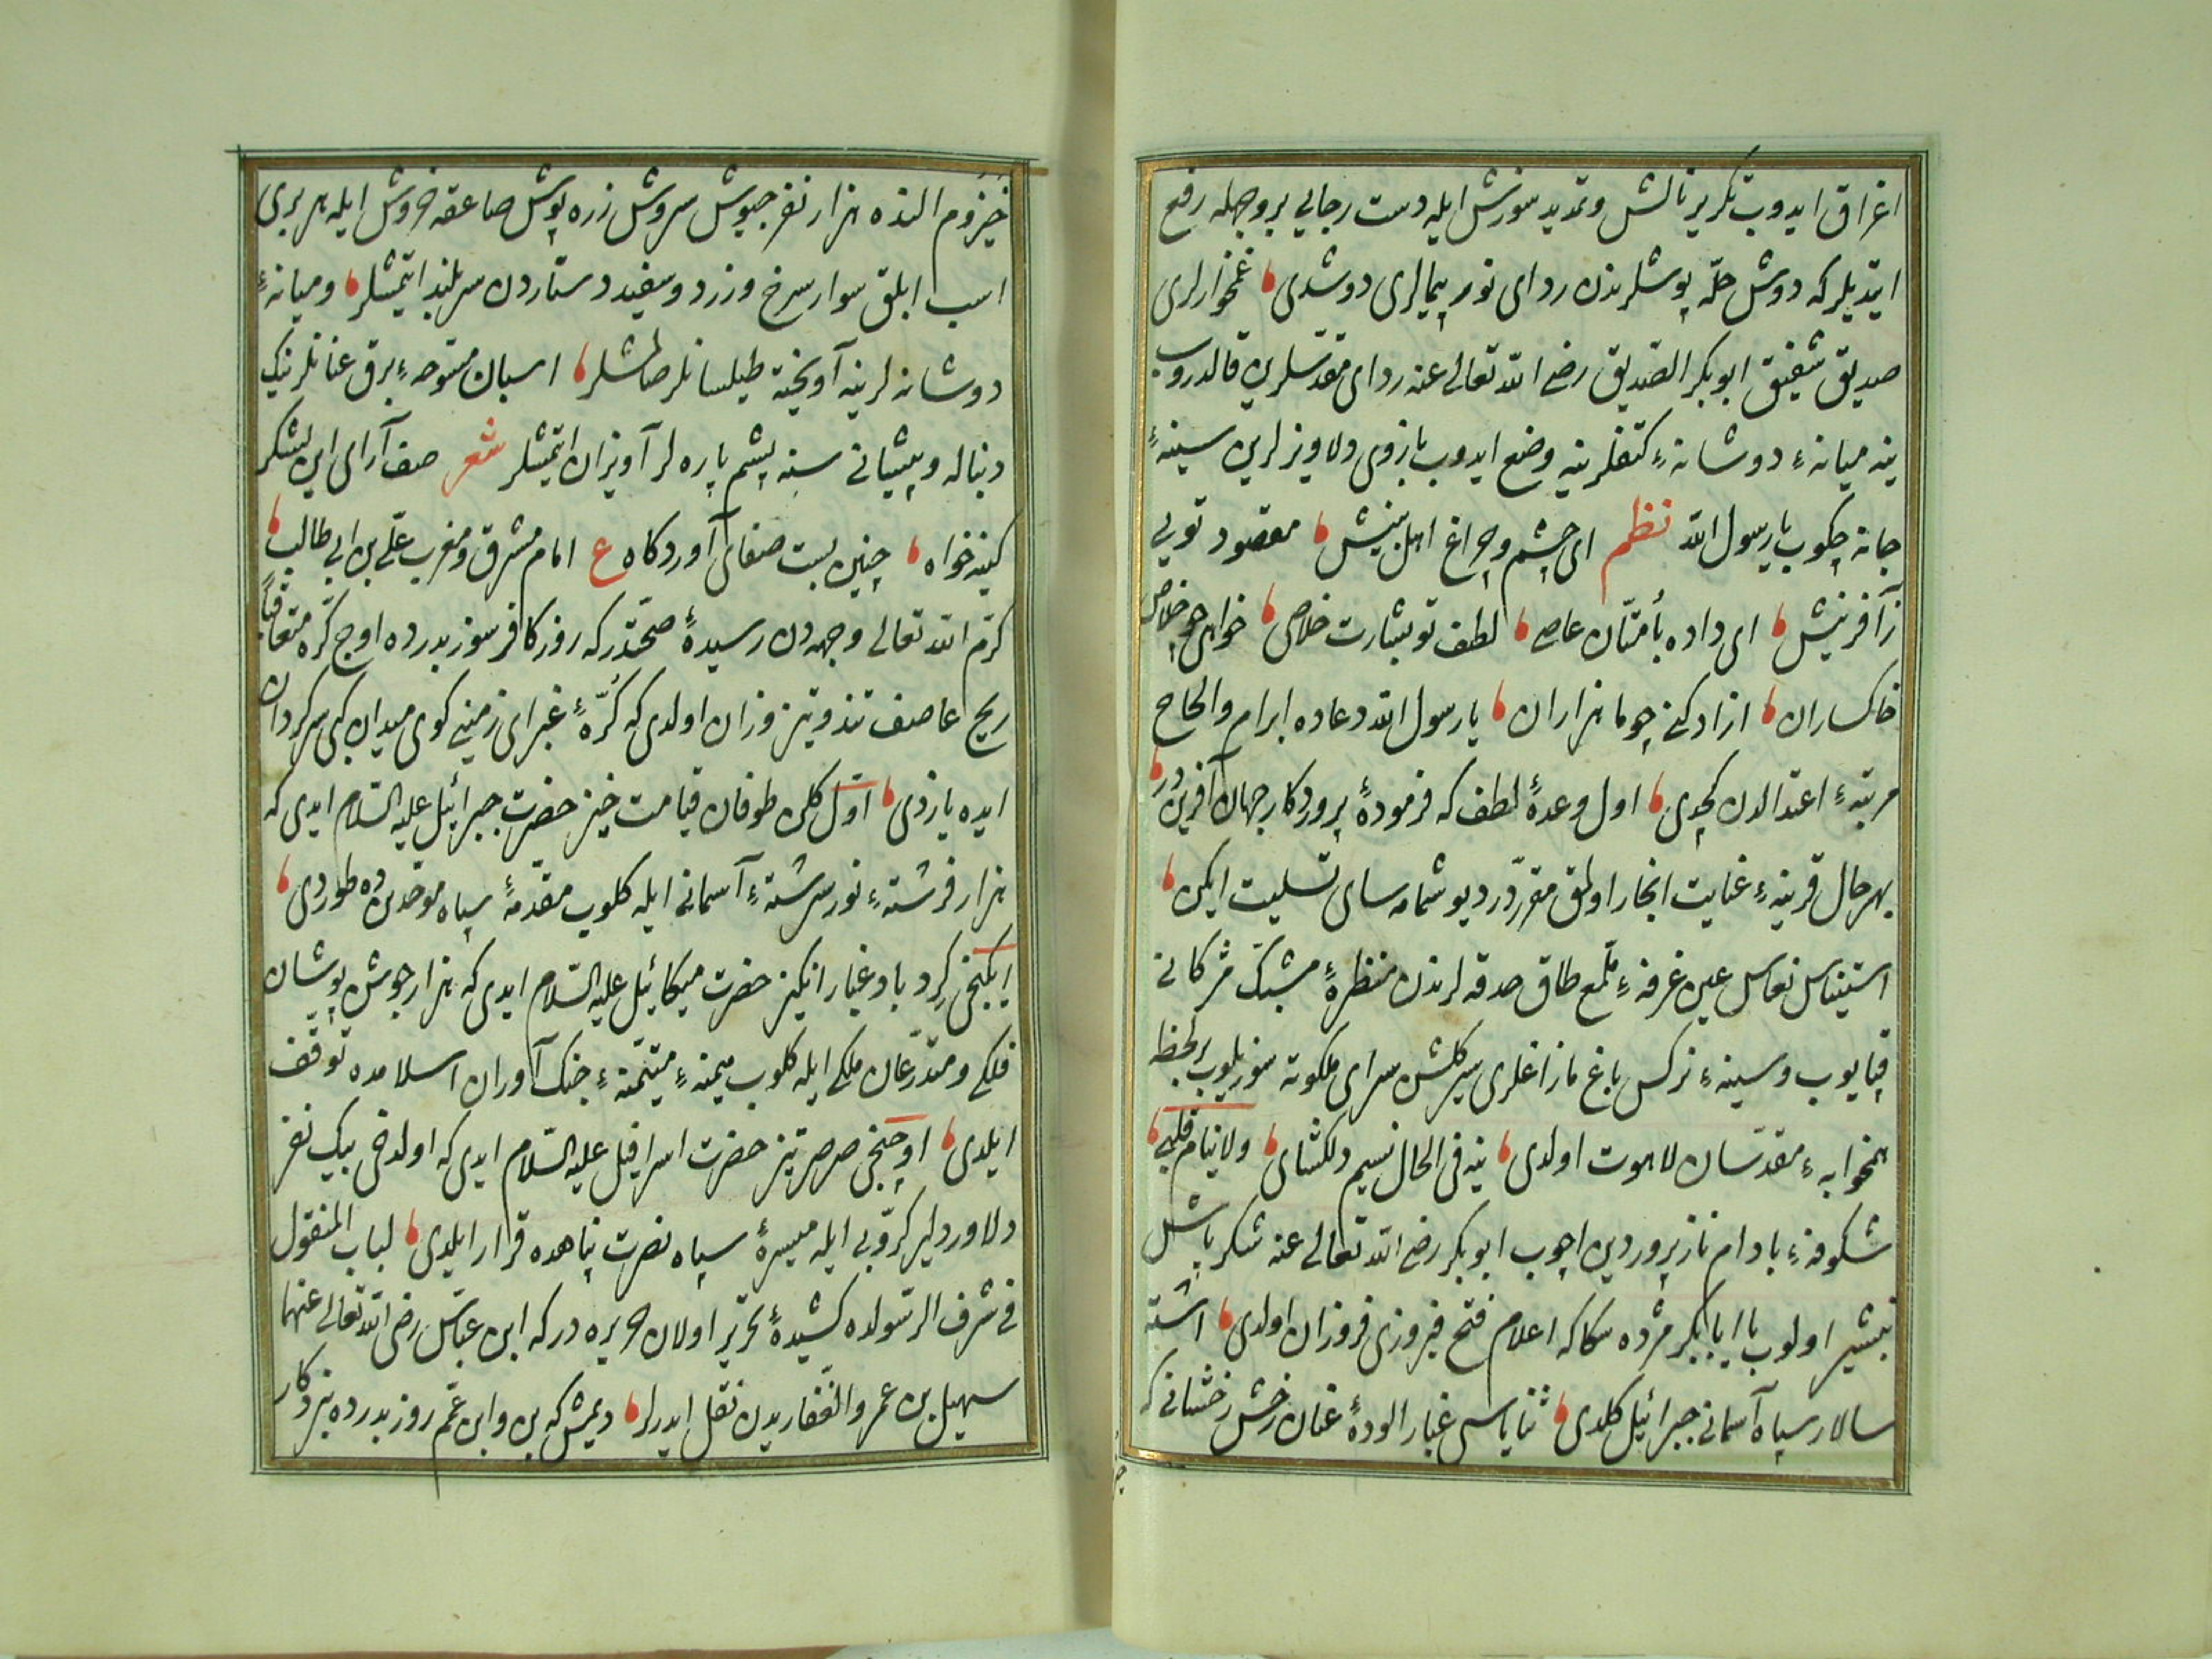 اغراق ايدوب تكرير نالش وتمديد سوزش ايله دست رجايى بر وجهله رفع
ايتديلر كه دوش حلّه پوشلرندن رداى نور پيمالرى دوشدى غمخوارلرى
صديق شفيق ابو بكر الصّديق رضى الله تعالى عنه رداى مقدّسلرين قالدروب
ينه ميانهٔ دوشانهٔ كتفلرينه وضع ايدوب بازوى دلاويزلرين سينهٔ
جانه چكوب يا رسول الله نظم اى چشم وچراغ اهل بينش مقصود تويى
ز آفرينش اى داده بأمّتان عاصى لطف تو بشارت خلاصى خواهى چو خلاص
خاكساران ازاد كنى چو ما هزاران يا رسول الله دعاده ابرام والحاح
مرتبهٔ اعتدالدن كچدى اول وعدهٔ لطف كه فرمودهٔ پروردكار جهان آفريندر
بهر حال قرينهٔ غايت انجاز اولمق مقرّردر ديو شمامه ساى تسليت ايكن
استيناس نعاس عين غرفهٔ ملمع طاق حدقه لرندن منظرهٔ مشبّك مژكانى
قپايوب وسينهٔ نركس باغ مازاغلرى سير كلشن سراى ملكوته سوزيلوب بر لحظه
همخوابهٔ مقدّسان لاهوت اولدى ينه فى الحال نسيم دلكشاى ولا ينام قلبى
شكوفهٔ بادام ناز پروردين اچوب ابو بكر رضى الله تعالى عنه شكر پاش
تبشير اولوب يا ابا بكر مژده سكا كه اعلام فتح فيروزى فروزان اولدى اشته
سالار سپاه آسمانى جبرائيل كلدى ثناياسى غبار الودهٔ عنان رخش رخشانى كه
خيزوم النده هزار نفر جيوش سروش زره پوش صاعقه خروش ايله هر برى
اسب ابلق سوار سرخ وزرد وسفيد دستاردن سربلند ايتمشلر وميانهٔ
دوشانه لرينه آويخته طيلسانلر صالمشلر اسبان متوجهٔ برق عنانلرينك
دنباله وپيشانى سنه پشم پاره لر آويزان ايتمشلر شعر صف آراى اين لشكر
كينه خواه چنين بست صفهاى آوردكاه ع امام مشرق ومغرب على بن ابى طالب
كرّم الله تعالى وجهه دن رسيدهٔ صحّتدر كه روز كافر سوز بدرده اوچ كرّه متعاقباً
ريح عاصف تند وتيز وزان اولدى كه كُرّهٔ غبراى زمينى كوى ميدان كبى سركردان
ايده يازدى اوّل كلن طوفان قيامت خيز حضرت جبرائيل عليه السّلام ايدى كه
هزار فرشتهٔ نور سرشتهٔ آسمانى ايله كلوب مقدّمهٔ سپاه موحّدينده طوردى
ايكنجى كرد باد غبار انكيز حضرت ميكائيل عليه السّلام ايدى كه هزار جوشن پوشان
فلكى ومتدرّعان ملكى ايله كلوب ميمنهٔ متيمّنهٔ جنك آوران اسلامده توقّف
ايلدى اوچنجى صرصر تيز حضرت اسرافيل عليه السّلام ايدى كه اولدخى بيك نفر
دلاور دلير كرّوبى ايله ميسرهٔ سپاه نصرت پناهده قرار ايلدى لباب المنقول
فى شرف الرسولده كشيدهٔ تحرير اولان جريره در كه ابن عبّاس رضى الله تعالى عنهما
سهيل بن عمرو الغفاريدن نقل ايدرلر ديمش كه بن وابن عمّم روز بدرده بزدكار